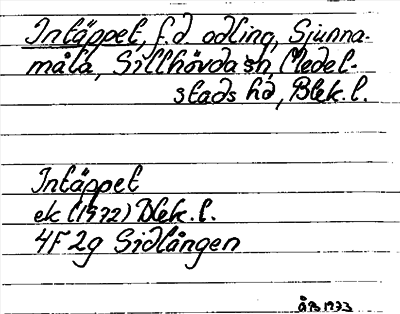 Intäppet, f.d. odling, Sjunna-
måla, Sillhövda sn, Medel-
stads hd, Blek. l.
Intäppet
ek (1972) Blek. l.
4F 2g Sidlången
ÅB 1973